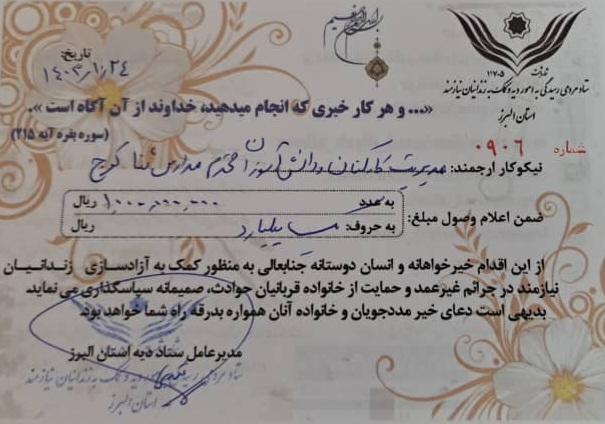 بسم الله الرحمن الرحیم
شماره ثبت: ۱۱۷۰۵
ستاد مردمی رسیدگی به امور دیه و کمک به زندانیان نیازمند
استان البرز
تاریخ: ۱۴۰۳/۱/۲۴
«... و هر کار خیری که انجام میدهید، خداوند از آن آگاه است».
(سوره بقره آیه ۲۱۵)
شماره ۰۹۰۶
نیکوکار ارجمند: مدیریت کارکنان و دانش آموزان محترم مدارس ثنا کرج
ضمن اعلام وصول مبلغ:
به عدد ۱,۰۰۰,۰۰۰,۰۰۰ ریال
به حروف: یک میلیارد ریال
از این اقدام خیرخواهانه و انسان دوستانه جنابعالی به منظور کمک به آزادسازی زندانــیــان
نیازمند در جرائم غیرعمد و حمایت از خانواده قربانیان حوادث، صمیمانه سپاسگذاری می نماید.
بدیهی است دعای خیر مددجویان و خانواده آنان همواره بدرقه راه شما خواهد بود.
مدیرعامل ستاد دیه استان البرز
ستاد مردمی رسیدگی به امور دیه و کمک به زندانیان نیازمند
استان البرز